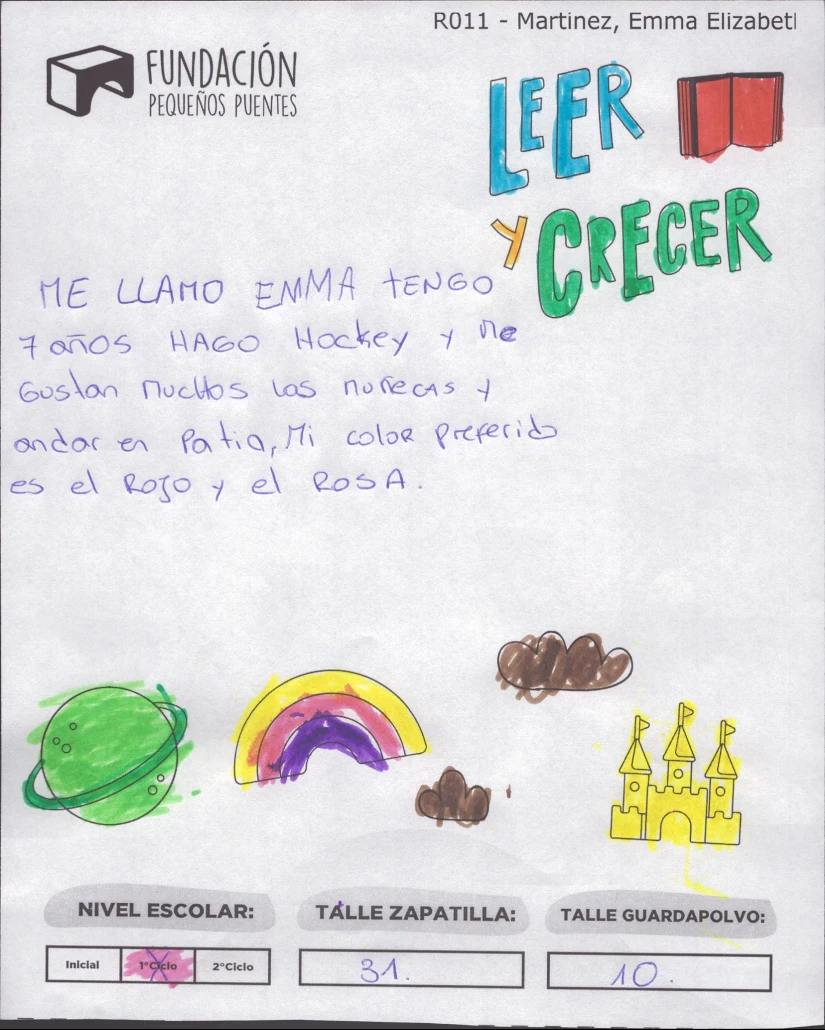 R011 - Martinez, Emma Elizabetl
FUNDACIÓN
PEQUEÑOS PUENTES
LEER
Y CRECER
ME LLAMO EMMA tENGO
7 años HAGO Hockey y Me
Gustan Muchos las muñecas y
andar en Patia, Mi color preferido
es el Rojo y el ROSA.
NIVEL ESCOLAR:
TALLE ZAPATILLA:
TALLE GUARDAPOLVO:
Inicial
1°Ciclo
2°Ciclo
31.
10.